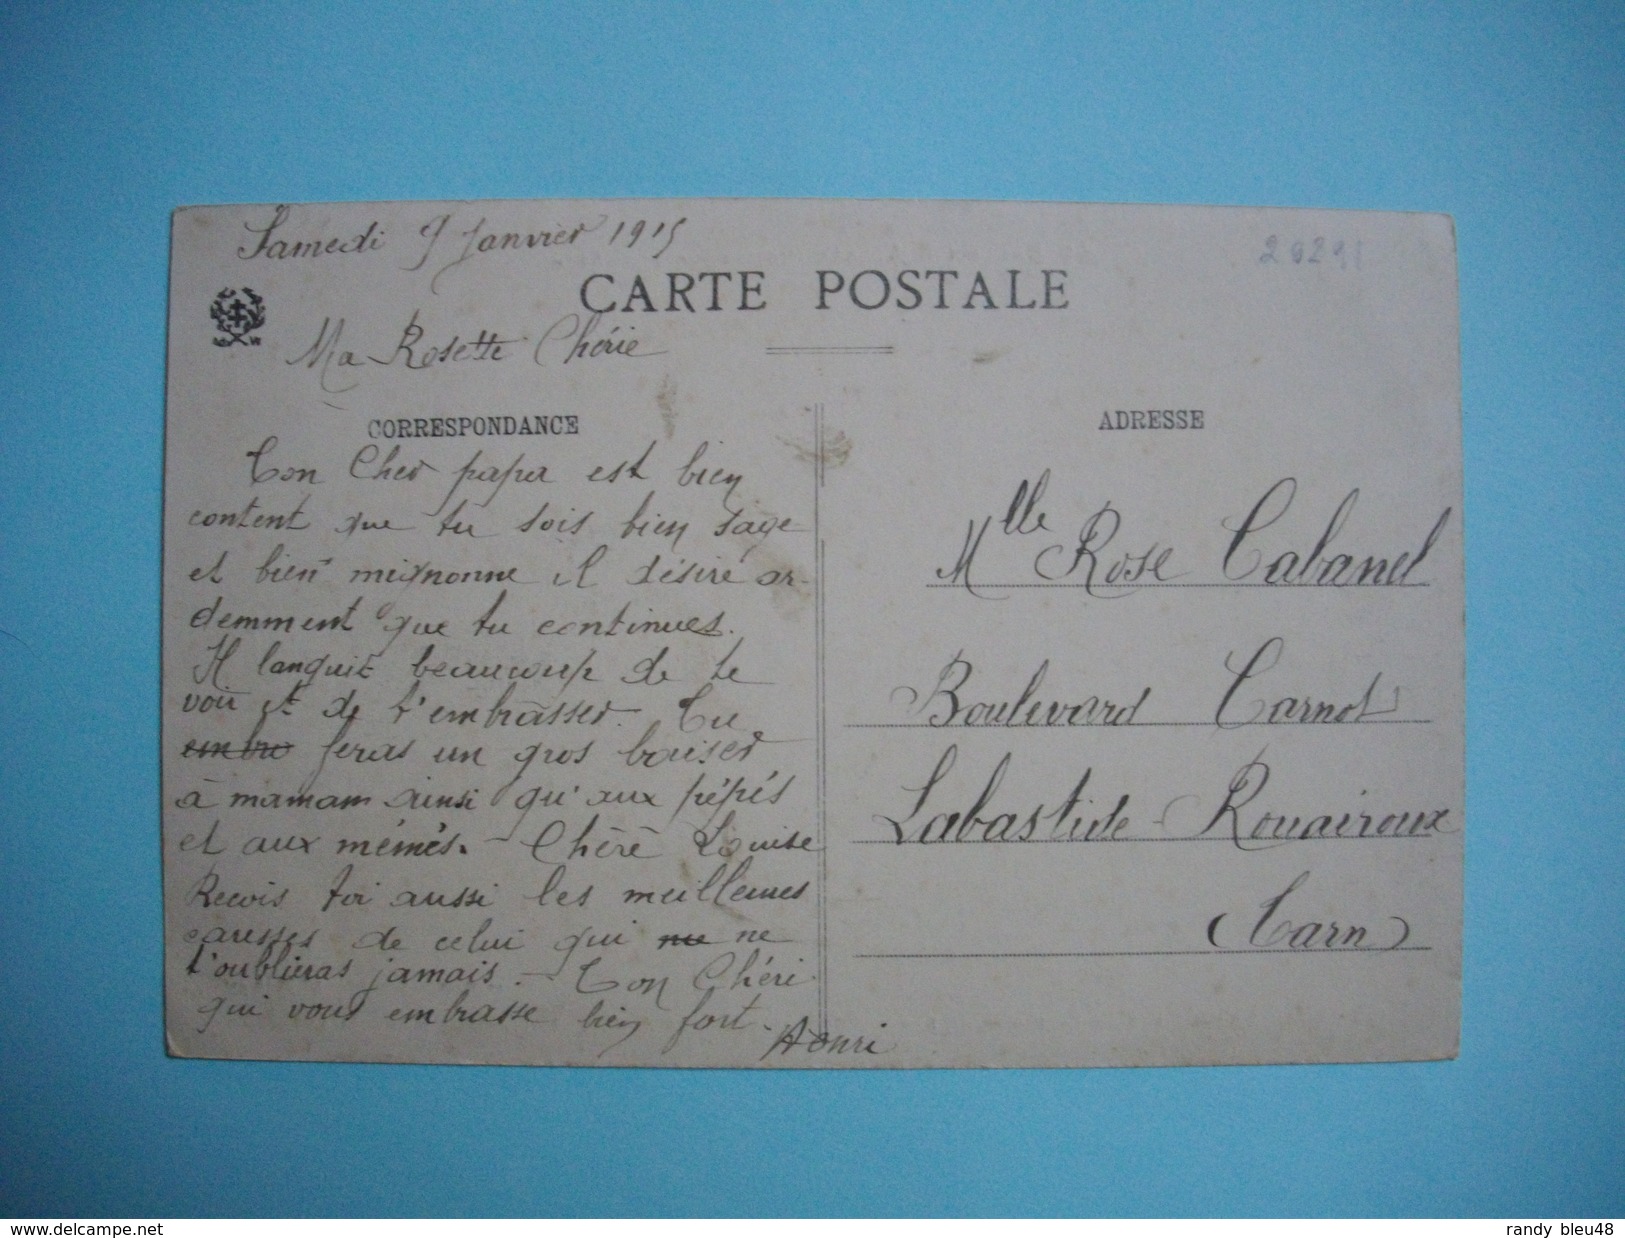 Samedi 9 Janvier 1915
CARTE POSTALE
Ma Rosette Chérie
CORRESPONDANCE
Ton Cher papa est bien
content que tu sois bien sage
et bien mignonne il désire ar-
demment que tu continues.
Il languit beaucoup de te
voir et de t'embrasser. Tu
embra feras un gros baiser
à mamam ainsi qu'aux pépés
et aux mémés. - Chère Louise
Recois toi aussi les meilleures
caresses de celui qui ne
t'oublieras jamais. - Ton Chéri
qui vous embrasse bien fort.
Henri
ADRESSE
Mlle Rose Cabanel
Boulevard Carnot
Labastide-Rouairoux
(Tarn)
www.delcampe.net
randy_bleu48